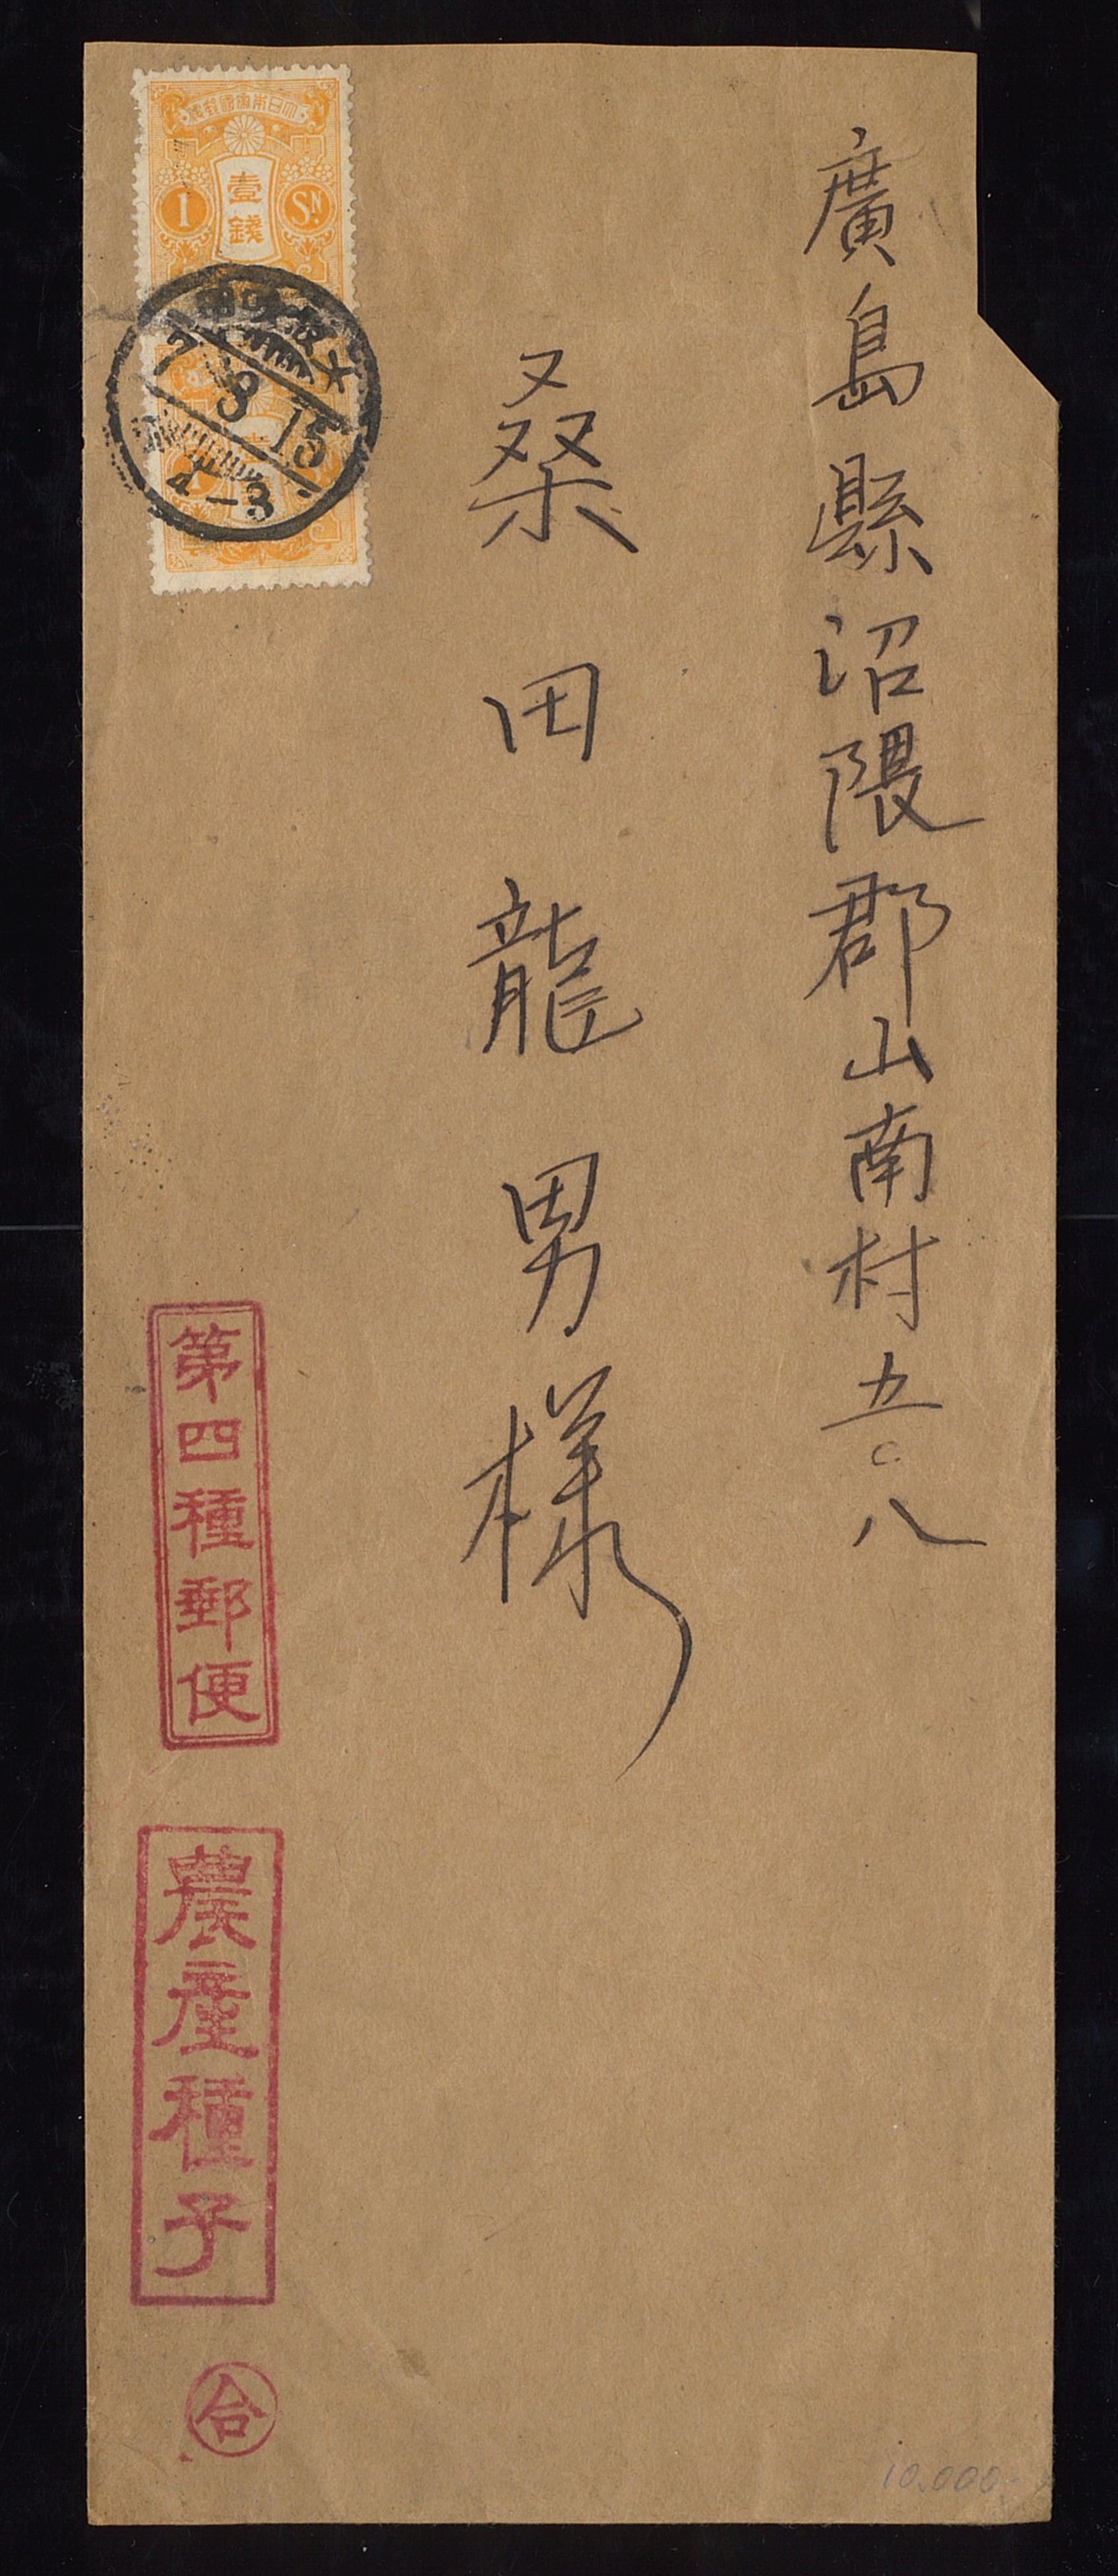 廣島縣沼隈郡山南村五〇八
桑田龍男様
大日本帝國郵便
壹錢
1 Sn.
7 8 15
第四種郵便
農産種子
合
10.000-